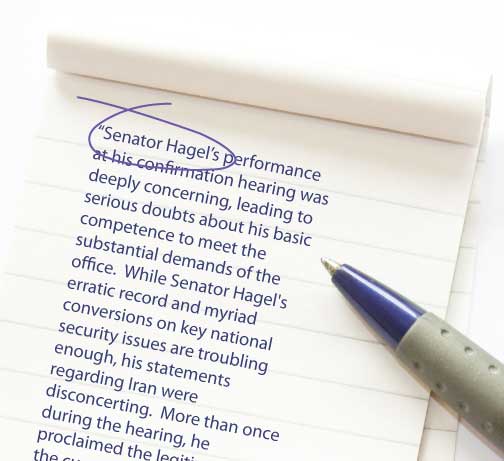 “Senator Hagel’s performance
at his confirmation hearing was
deeply concerning, leading to
serious doubts about his basic
competence to meet the
substantial demands of the
office.  While Senator Hagel's
erratic record and myriad
conversions on key national
security issues are troubling
enough, his statements
regarding Iran were
disconcerting.  More than once
during the hearing, he
proclaimed the
the